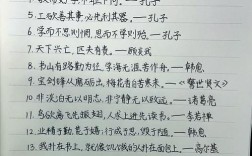 5.工欲善其事必先利其器。——孔子
6.学而不思则罔,思而不学则殆。——孔子
7.天下兴亡,匹夫有责。——顾炎武
8.书山有路勤为径,学海无涯苦作舟。——韩愈
9.宝剑锋从磨砺出,梅花香自苦寒来。——《警世贤文》
10.非淡泊无以明志,非宁静无以致远。——诸葛亮
11.鸟欲高飞先振翅,人求上进先读书。——李若禅
12.业精于勤,荒于嬉;行成于思,毁于随。——韩愈
13.我扑在书上,就像饥饿的人扑在面包上。——高尔基